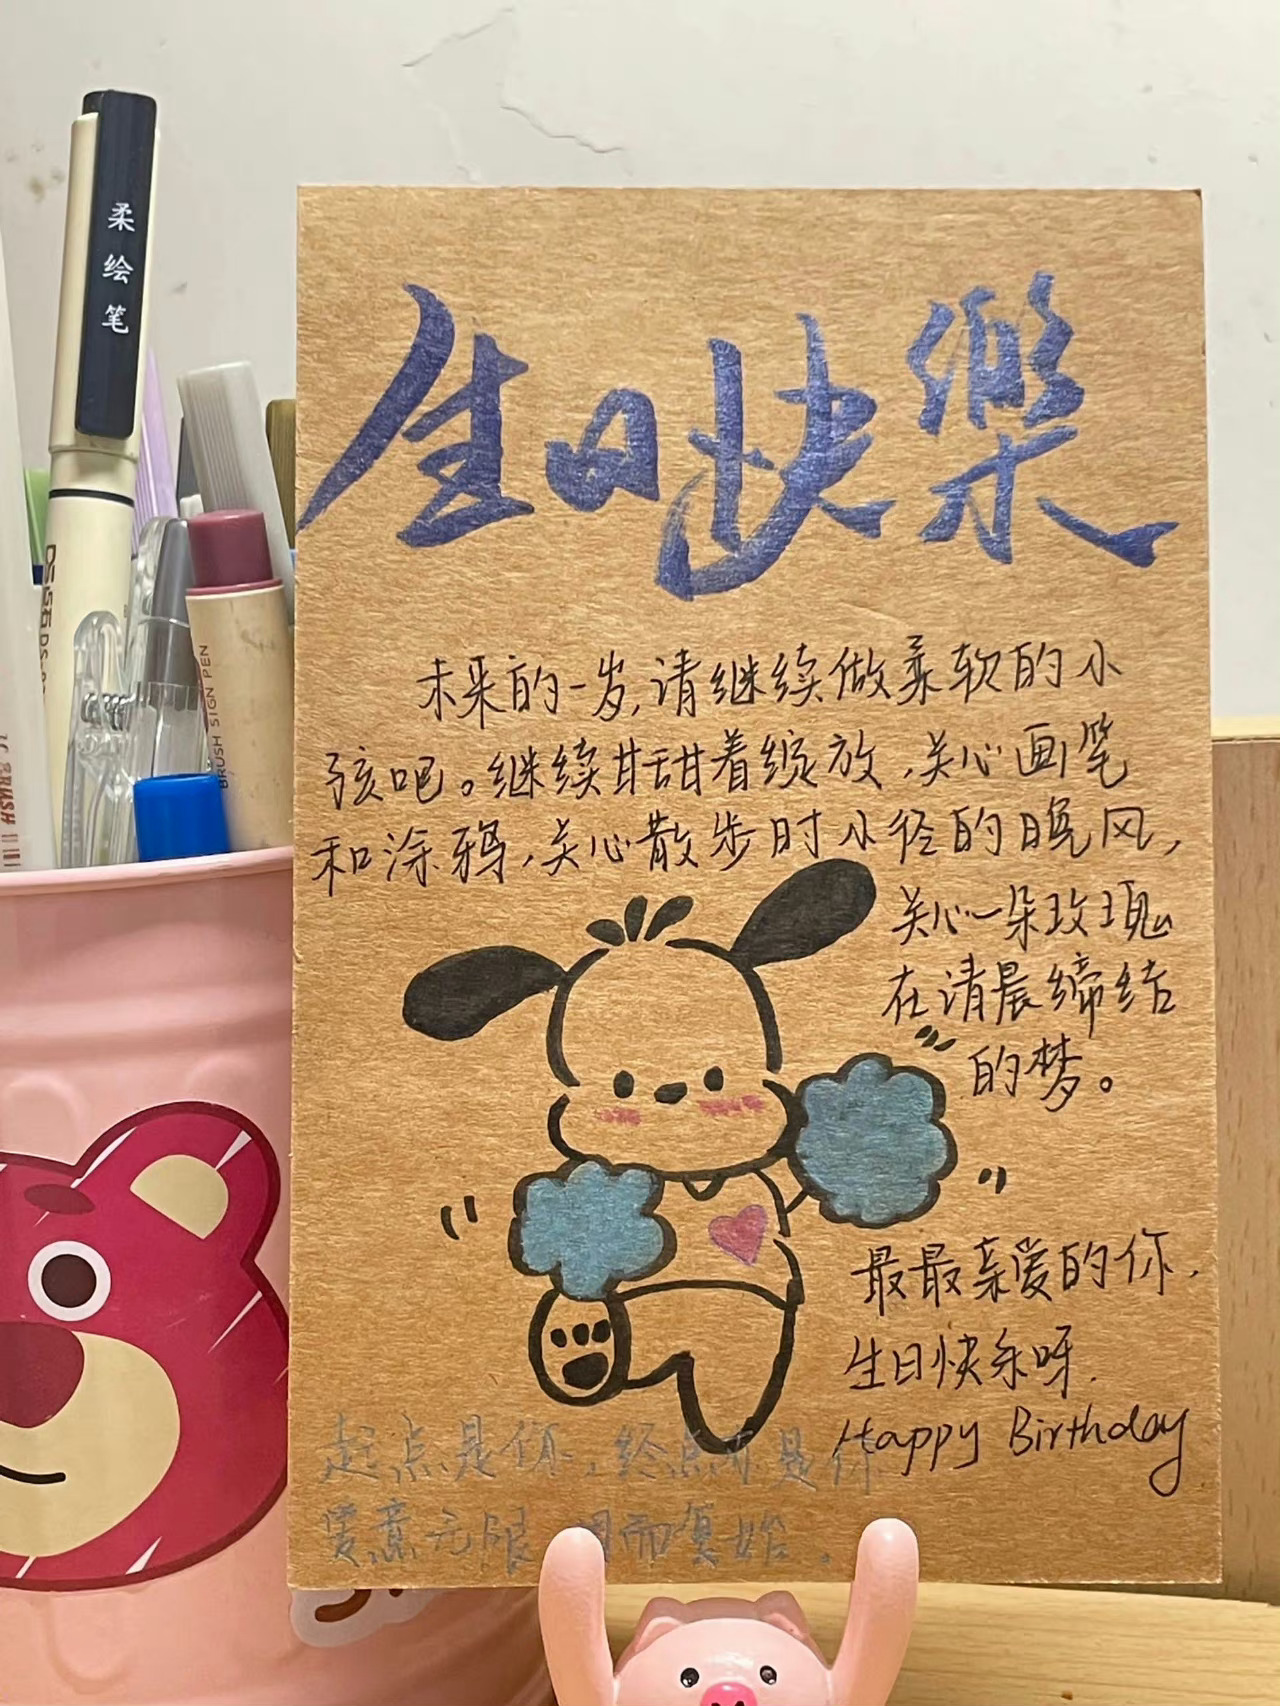 柔绘笔
BRUSH SIGN PEN
生日快樂
未来的一岁,请继续做柔软的小
孩吧。继续甘甜着绽放,关心画笔
和涂鸦,关心散步时小径的晚风,
关心一朵玫瑰
在清晨缔结
的梦。
最最亲爱的你,
生日快乐呀.
Happy Birthday
起点是你,终点亦是你
爱意无限 周而复始。